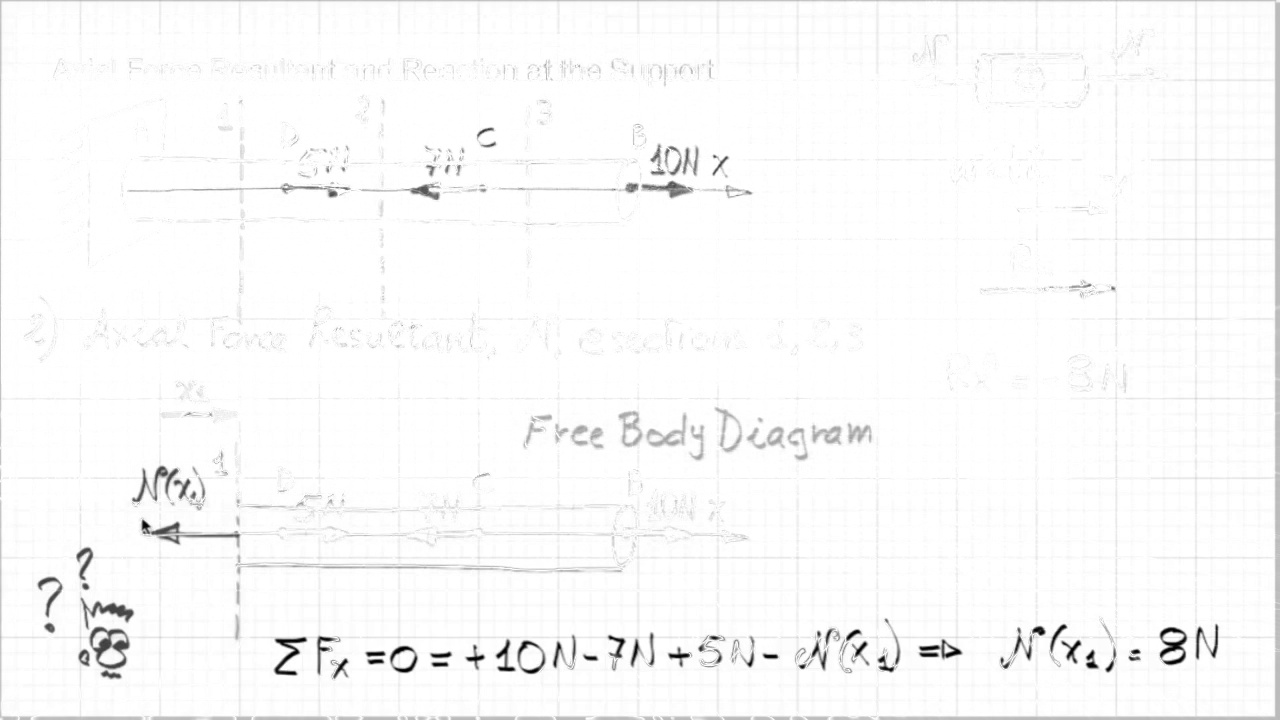 Axial Force Resultant and Reaction at the Support
1 2 3
A D 5N 7N C B 10N x
N N
x
R
2) Axial Force Resultant, N, @ sections 1, 2, 3
RxA = -8N
x1
Free Body Diagram
N(x1) 1 D 5N 7N C B 10N x
? ?
ΣFx = 0 = +10N - 7N + 5N - N(x1) => N(x1) = 8N